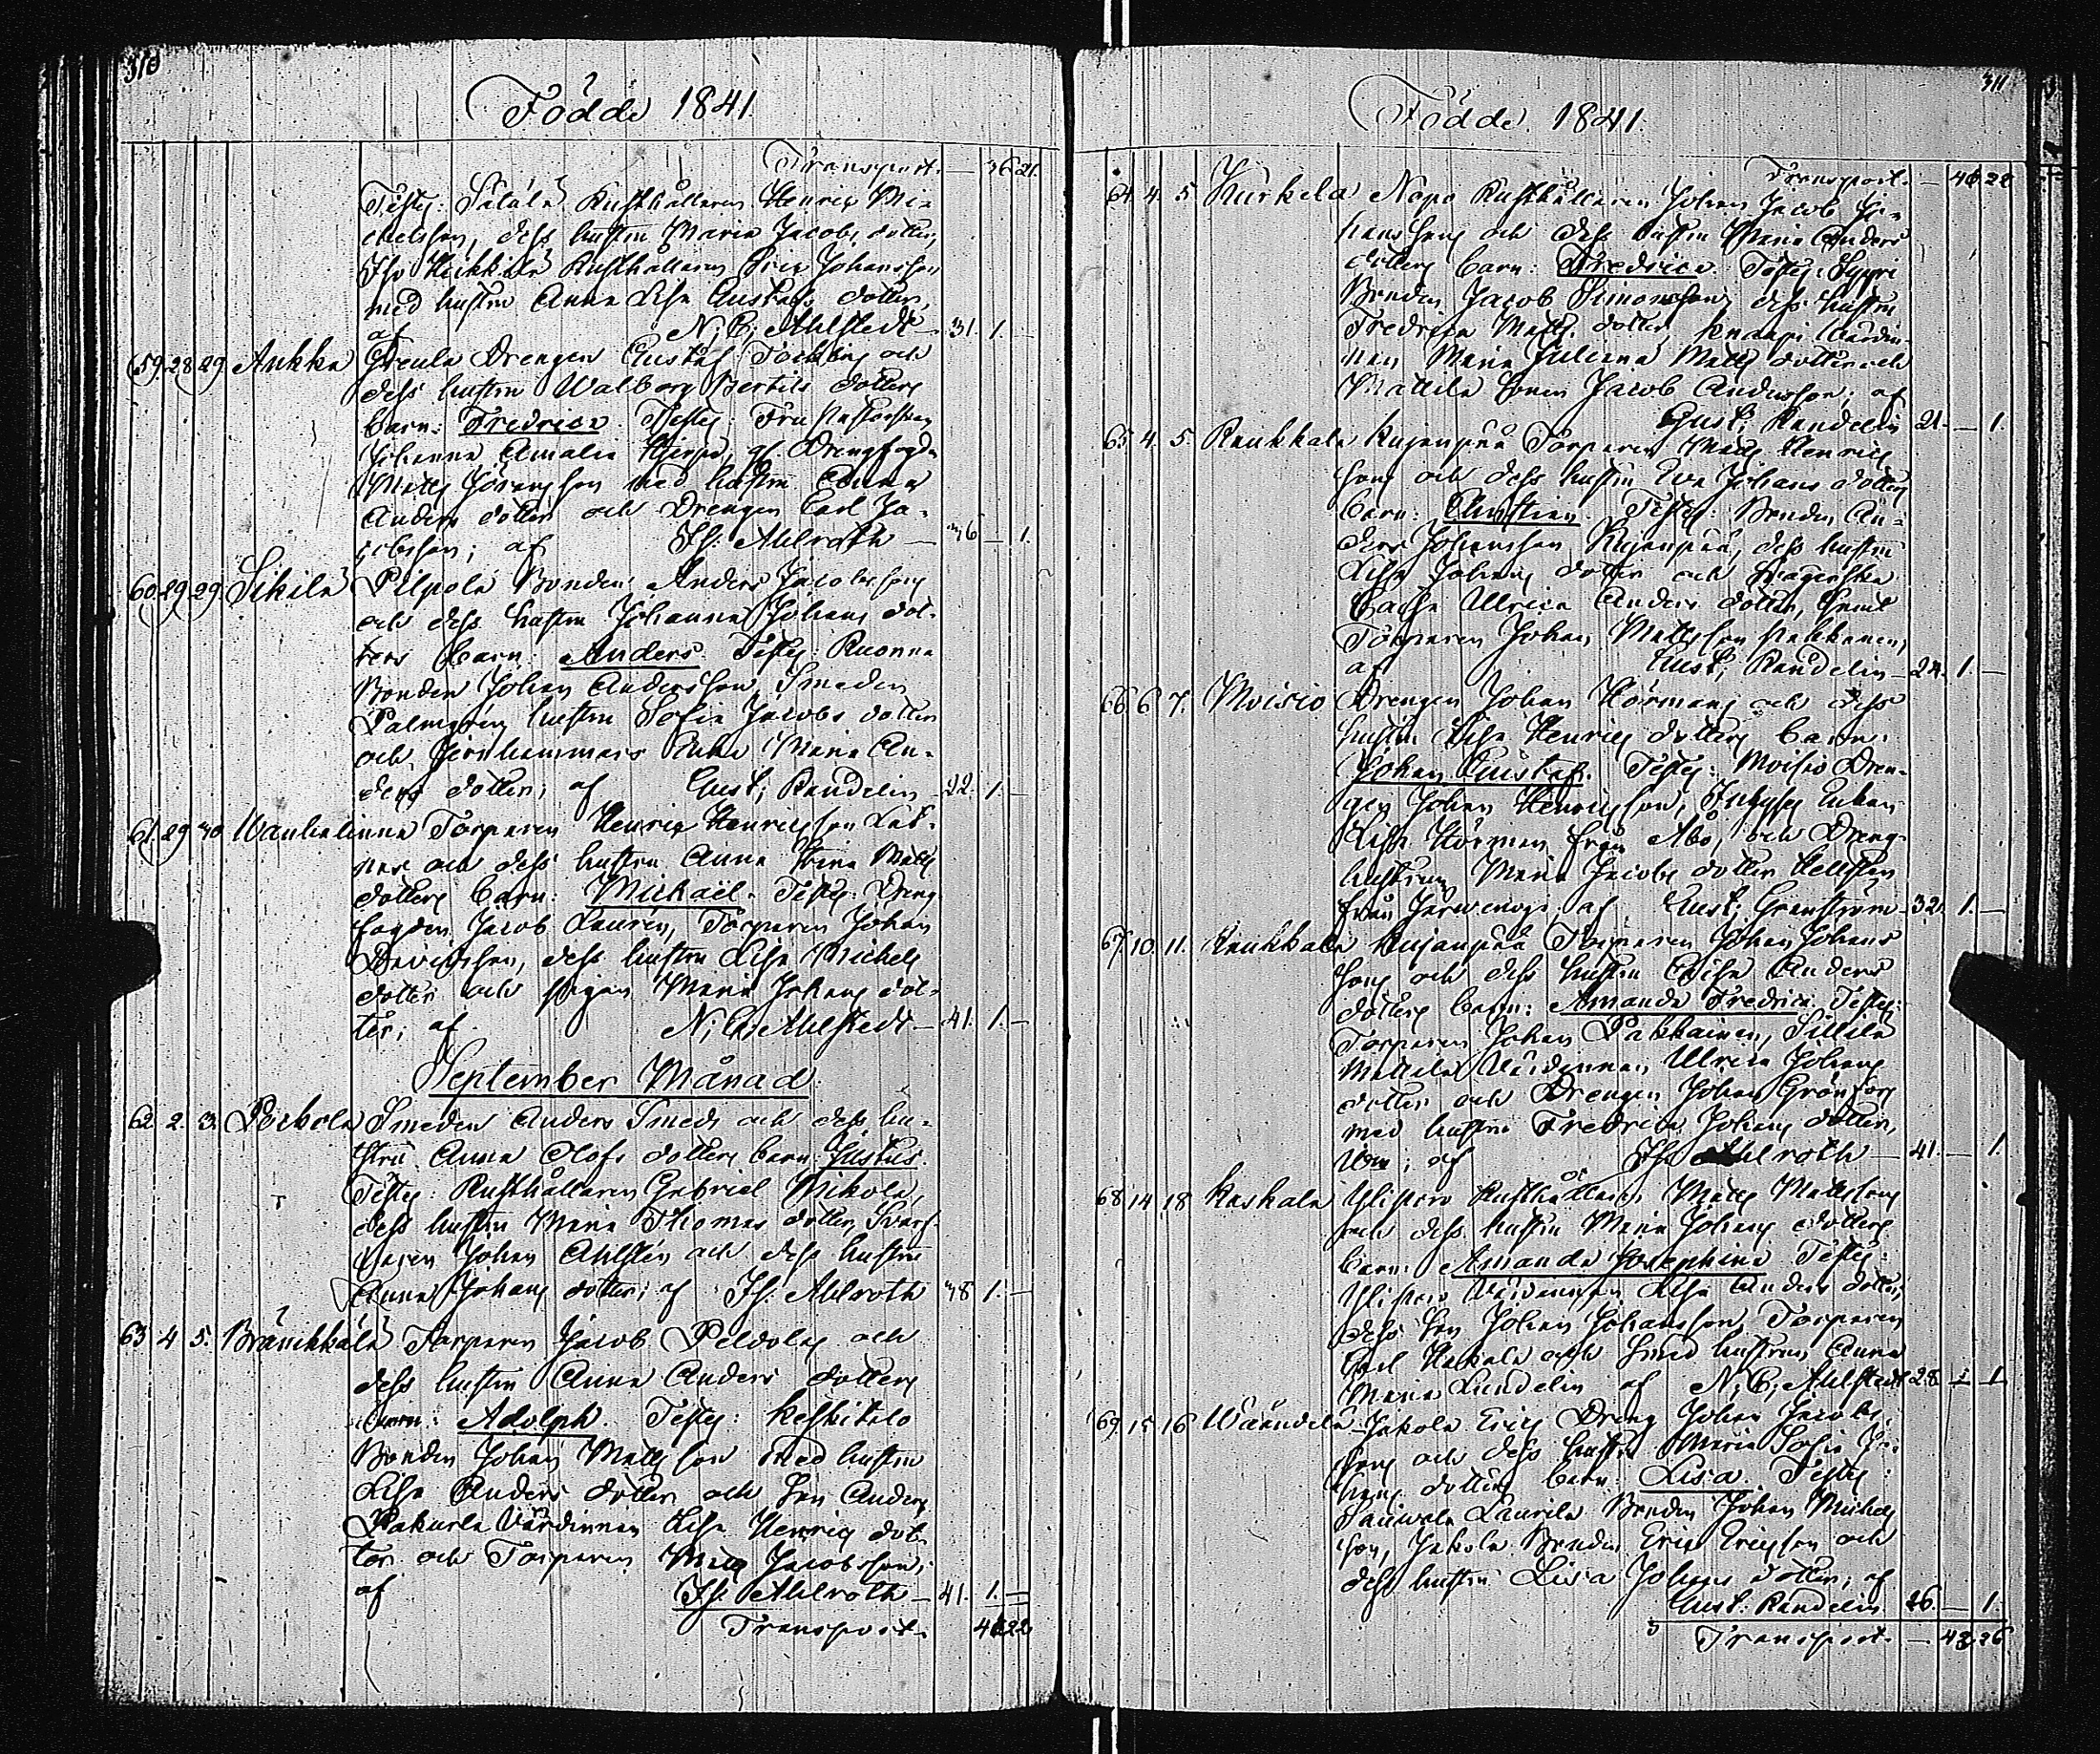 310
Födde 1841.
Transport. — 36 21.
Testes: Sälälä Rusthållaren Henric Mi=
chelsson, dess hustru Maria Jacobs dotter,
Iso Heikkilä Rusthållaren Eric Johansson
med hustru Anna Lisa Gustafs dotter,
af N: C: Ahlstedt — 31. 1. —
59. 28. 29. Aukka Greula Drengen Gustaf Tockling och
dess hustru Walborg Bertils dotters
barn: Fredrica. Testes: Fru
Johanna Amalia af Drengfogden
Matts Göransson med hustru Anna
Anders dotter och Drengen Carl Ja=
cobsson; af Is: Ahlroth — 36 — 1.
60. 29. 29. Sikilä Pilpola Bonden Anders Jacobssons
och dess hustru Johanna Johans dot-
ters barn: Anders. Testes: Ruonna
Bonden Johan Andersson, Smeden
Palmgréns hustru Sofia Jacobs dotter
och Jernhammars Enka Maria An-
ders dotter; af Gust: Randelin — 22. 1. —
61. 29 30 Wanhalinna Torparen Henric Henricsson
och dess hustru Anna Stina Matts
dotters barn: Michaël. Testes: Dreng
fogden Jacob Laurén, Torparen Johan
Davidsson, dess hustru Lisa Michels
dotter och pigan Maria Johans dot-
ter; af N: C: Ahlstedt — 41. 1. —
September Månad.
62. 2. 3. Pockola Smeden Anders Smeds och dess hu-
stru Anna Olofs dotters barn Justus.
Testes: Rusthållaren Gabriel Mikola,
dess hustru Maria Thomas dotter,
Johan Ahlstén och dess hustru
Anna Johans dotter; af Is: Ahlroth 38 1. —
63 4 5. Brännkkälä Torparen Jacob Peldolas och
dess hustru Anna Anders dotters
barn: Adolph. Testes: Keskitalo
Bonden Johan Mattsson med hustru
Lisa Anders dotter och son Anders
Pakurla Värdinnan Lisa Henrics dot-
ter och Torparen Matts Jacobsson;
af Is: Ahlroth — 41. 1. —
Transport. 41 22
311
Födde 1841.
Transport. — 41 22
64. 4. 5 Kurkela Nopo Rusthållaren Johan Jacob Jo-
hanssons och dess hustru Maria Anders
dotters barn: Fredrica. Testes:
Bonden Jacob Simonsson, dess hustru
Fredrica Matts dotter, Knaapi Värdin-
nan Maria Juliana Matts dotter och
Mattila Sonen Jacob Andersson; af
Gust: Randelin 21. — 1.
65. 4. 5 Raukkala Kujanpää Torparen Matts Henrics
sons och dess hustru Eva Johans dotters
barn: Christian. Testes: Bonden An-
ders Johansson Kujanpää, dess hustru
Lisa Johans dotter och
Ullrica Anders dotter, samt
Torparen Johan Mattsson Pakkanen,
af Gust: Randelin — 24. 1. —
66 6 7. Moisio Drengen Johan Hörmans och dess
hustru Lisa Henrics dotters barn:
Johan Gustaf. Testes: Moisio Dren-
gen Johan Henricsson, Enkan
Lisa Hörman från Åbo, och Dreng-
hustrun Maria Jacobs dotter Hellsten
från af Gust: Granström — 32. 1. —
67. 10. 11. Raukkala Kujanpää Torparen Johan Johans
sons och dess hustru Lisa Anders
dotters barn: Amanda Fredrica. Testes:
Torparen Johan Pakkainen, Sillilä
Mattala Värdinnan Ullrica Johans
dotter och Drengen Johan Grönfors
med hustru Fredrica Johans dotter,
af Is: Ahlroth — 41. — 1.
68 14 18 Kaskala Ylistaro Rusthållaren Matts Mattssons
och dess hustru Maria Johans dotters
barn: Amanda Josephina. Testes:
Ylistaro Värdinnan Lisa Anders dotter,
dess son Johan Johansson, Torparen
Carl Kaskala och Smed hustrun Anna
Maria Lundelin af N: C: Ahlstedt 28. — 1
69. 15 16 Wääntelä Jakola Erics Dreng Johan Jacobs
sons och dess hustru Maria Sofia Jo-
hans dotters barn: Lisa. Testes:
Laurila Bonden Johan Michels
son, Jakola Bonden Eric Ericsson och
dess hustru Lisa Johans dotter; af
Gust: Randelin 26. — 1.
Transport. — 43 26